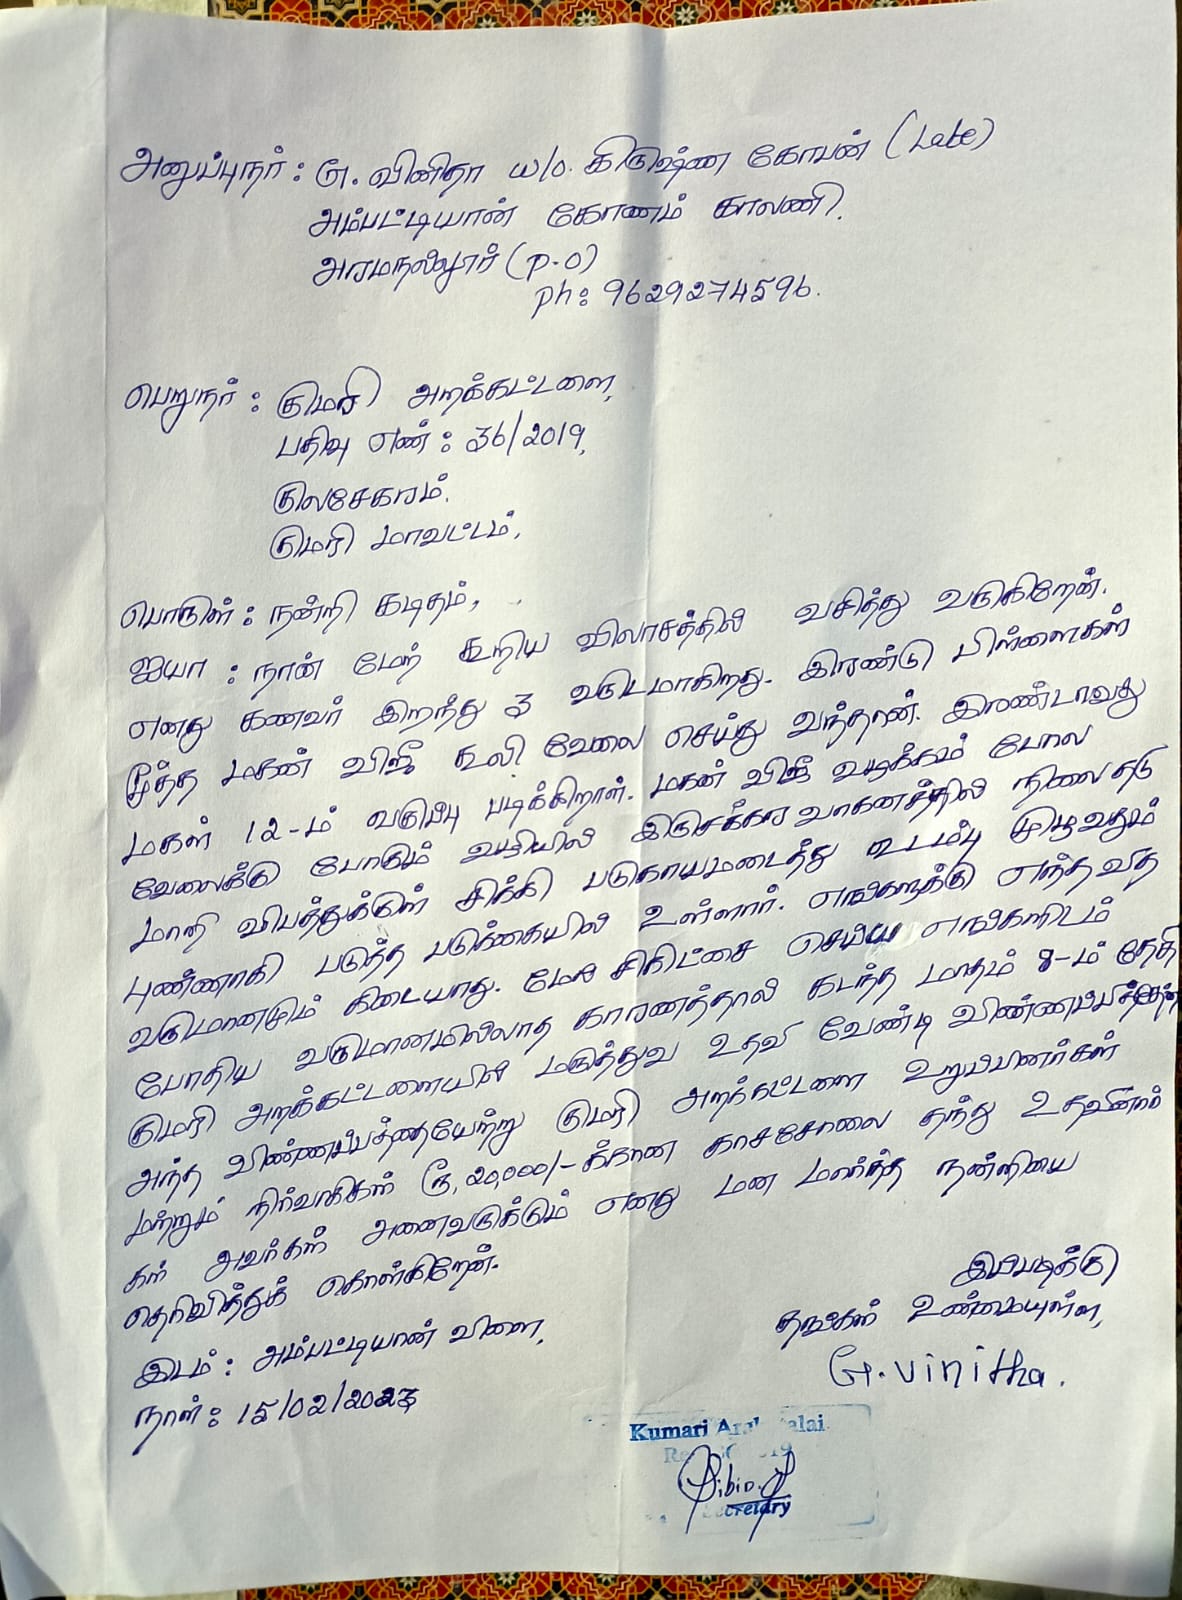 அனுப்புநர் : G. வினிதா W/o. கிருஷ்ண கோபன் (Late)
அம்பட்டியான் கோணம் காலணி.
அரமநல்லூர் (P.O)
ph: 9629274596.
பெறுநர் : குமரி அறக்கட்டளை,
பதிவு எண் : 36/2019,
குலசேகரம்.
குமரி மாவட்டம்.
பொருள் : நன்றி கடிதம்,
ஐயா : நான் மேற் கூறிய விலாசத்தில் வசித்து வருகிறேன்.
எனது கணவர் இறந்து 3 வருடமாகிறது. இரண்டு பிள்ளைகள்
மூத்த மகன் விஜீ கூலி வேலை செய்து வந்தான். இரண்டாவது
மகள் 12-ம் வகுப்பு படிக்கிறாள். மகன் விஜீ வழக்கம் போல
வேலைக்கு போகும் வழியில் இருசக்கர வாகனத்தில் நிலை தடு
மாறி விபத்துக்குள் சிக்கி படுகாயமடைந்து உடம்பு முழுவதும்
புண்ணாகி படுத்த படுக்கையில் உள்ளார். எங்களுக்கு எந்த வித
வருமானமும் கிடையாது. மேல் சிகிட்சை செய்ய எங்களிடம்
போதிய வருமானமில்லாத காரணத்தால் கடந்த மாதம் 8-ம் தேதி
குமரி அறக்கட்டளையில் மருத்துவ உதவி வேண்டி விண்ணப்பித்தேன்
அந்த விண்ணப்பத்தையேற்று குமரி அறக்கட்டளை உறுப்பினர்கள்
மற்றும் நிர்வாகிகள் ரூ. 20,000/- க்கான காசசோலை தந்து உதவினார்
கள் அவர்கள் அனைவருக்கும் எனது மன மார்ந்த நன்றியை
தெரிவித்துக் கொள்கிறேன்.
இப்படிக்கு
தங்கள் உண்மையுள்ள,
G. vinitha.
இடம் : அம்பட்டியான் விளை,
நாள் : 15/02/2023
Kumari
Secretary